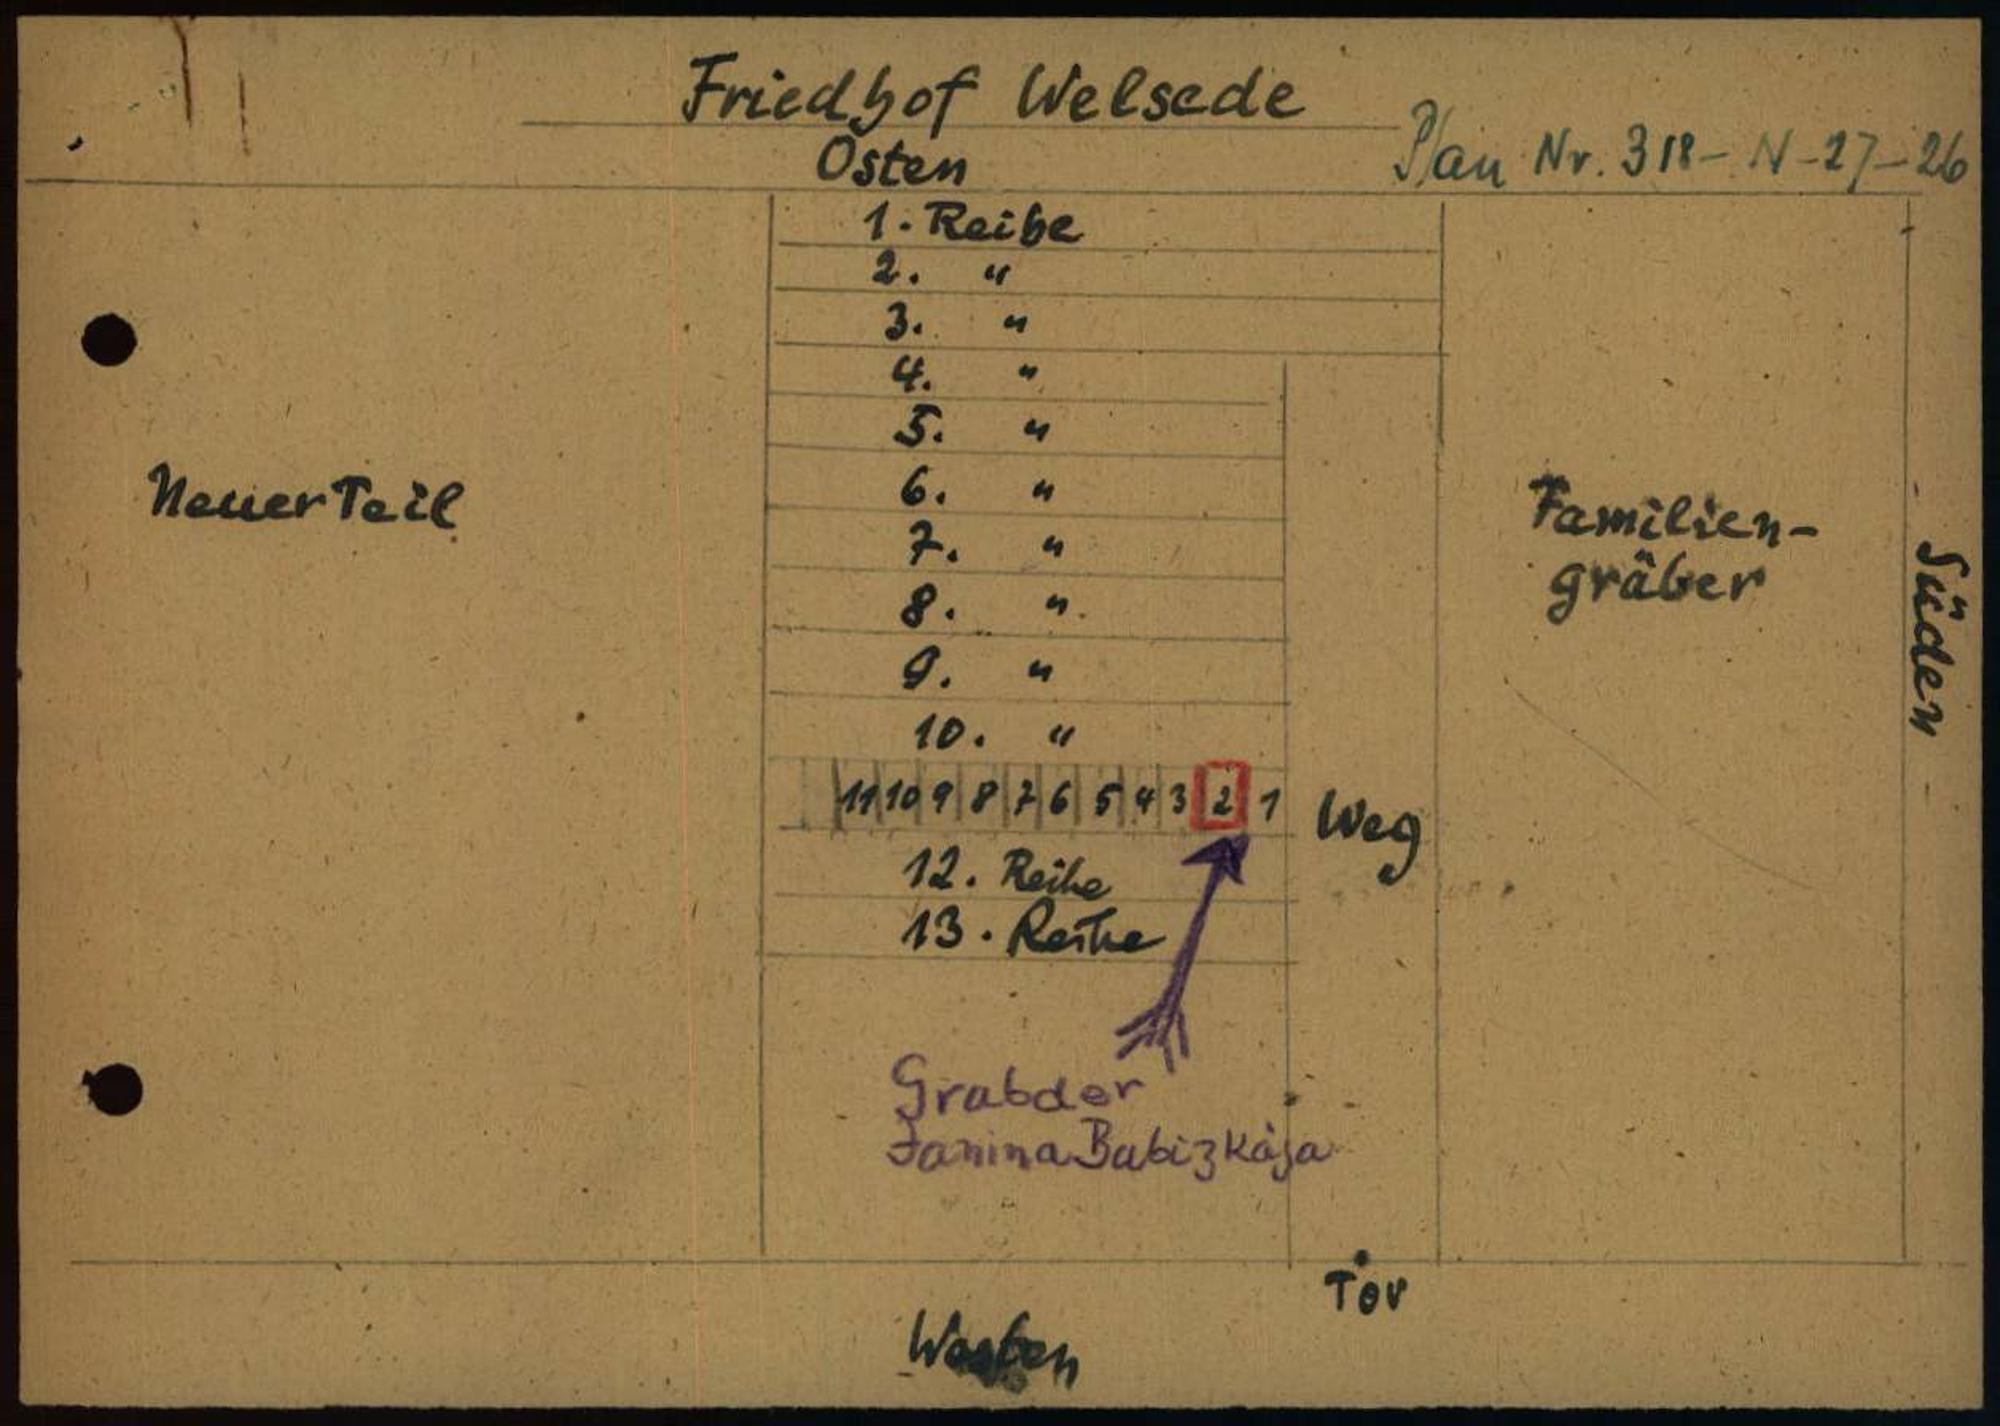 Friedhof Welsede
Osten
Plan Nr. 318-N-27-26
1. Reihe
2. "
3. "
4. "
5. "
6. "
7. "
8. "
9. "
10. "
11 10 9 8 7 6 5 4 3 2 1
12. Reihe
13. Reihe
Neuer Teil
Weg
Familien-
gräber
Süden
Grab der
Janina Babizkaja
Tor
Westen